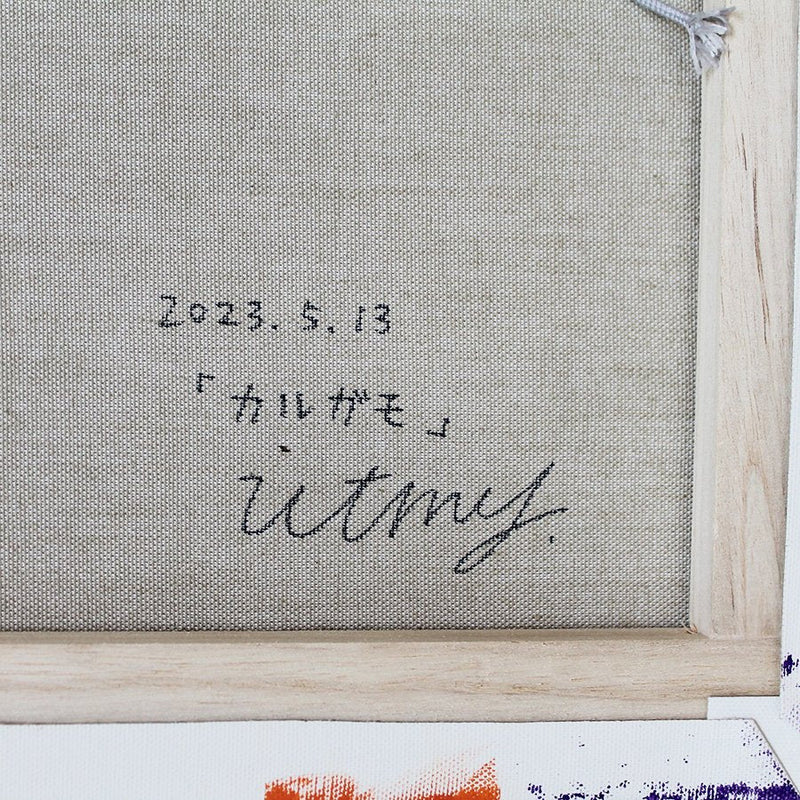 2023. 5. 13
「カルガモ」
ietmy.